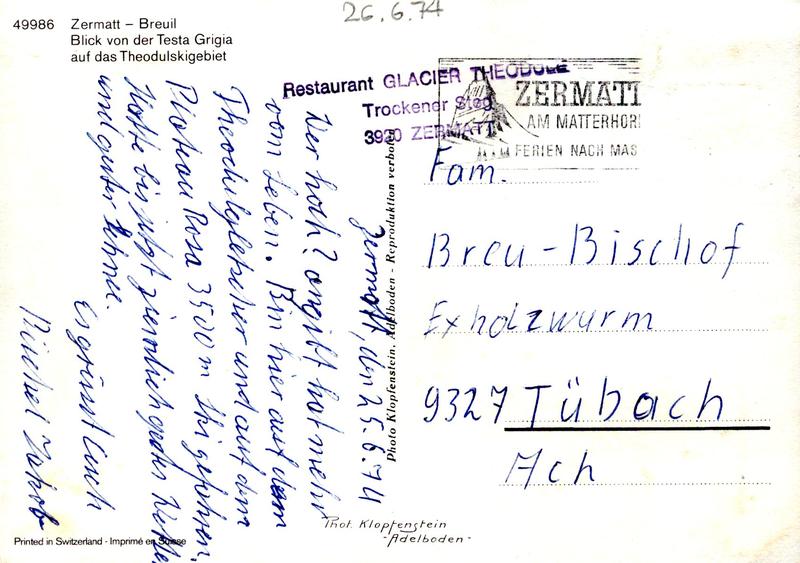 26.6.74
49986 Zermatt – Breuil
Blick von der Testa Grigia
auf das Theodulskigebiet
Restaurant GLACIER THEODULE
Trockener Steg
3920 ZERMATT
ZERMATT
AM MATTERHORN
FERIEN NACH MAS
Zermatt, den 25.6.74
Wer hoch? angift hat mehr
vom Leben. Bin hier auf dem
Theodulgletscher und auf dem
Plateau Rosa 3500 m Ski gefahren.
Hatte bis jetzt ziemlich gutes Wetter
und guter Schnee.
Es grüsst Euch
Jakob
Photo Klopfenstein, Adelboden - Reproduktion verboten
Fam.
Breu - Bischof
Exholzwurm
9327 Tübach
Ach
Phot. Klopfenstein
- Adelboden -
Printed in Switzerland - Imprimé en Suisse